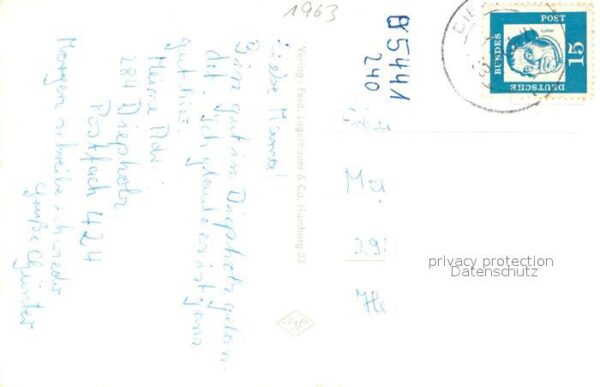 1963
85441
240
Liebe Mama!
Bin gut in Diepholz gelan-
det. Ich glaube es ist ganz
gut hier.
Meine Adr.
284 Diepholz
Postfach 424
Morgen schreibe ich wieder
Grüße Günter
Verlag: Ferd. Lagerbauer & Co. Hamburg 33
DEUTSCHE
BUNDES
POST
15
Luther
privacy protection
Datenschutz